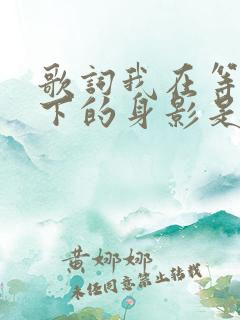 歌詞我在等
下的身影是
黄娜娜
未经同意禁止转载